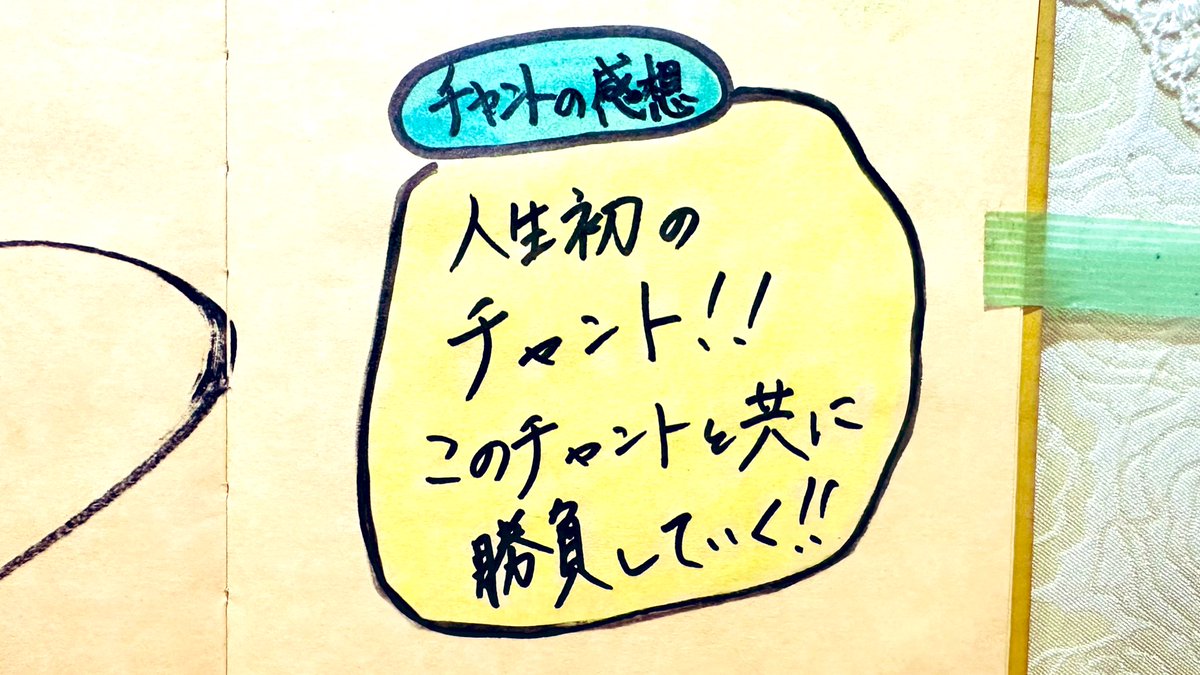 チャントの感想
人生初の
チャント!!
このチャントと共に
勝負していく!!